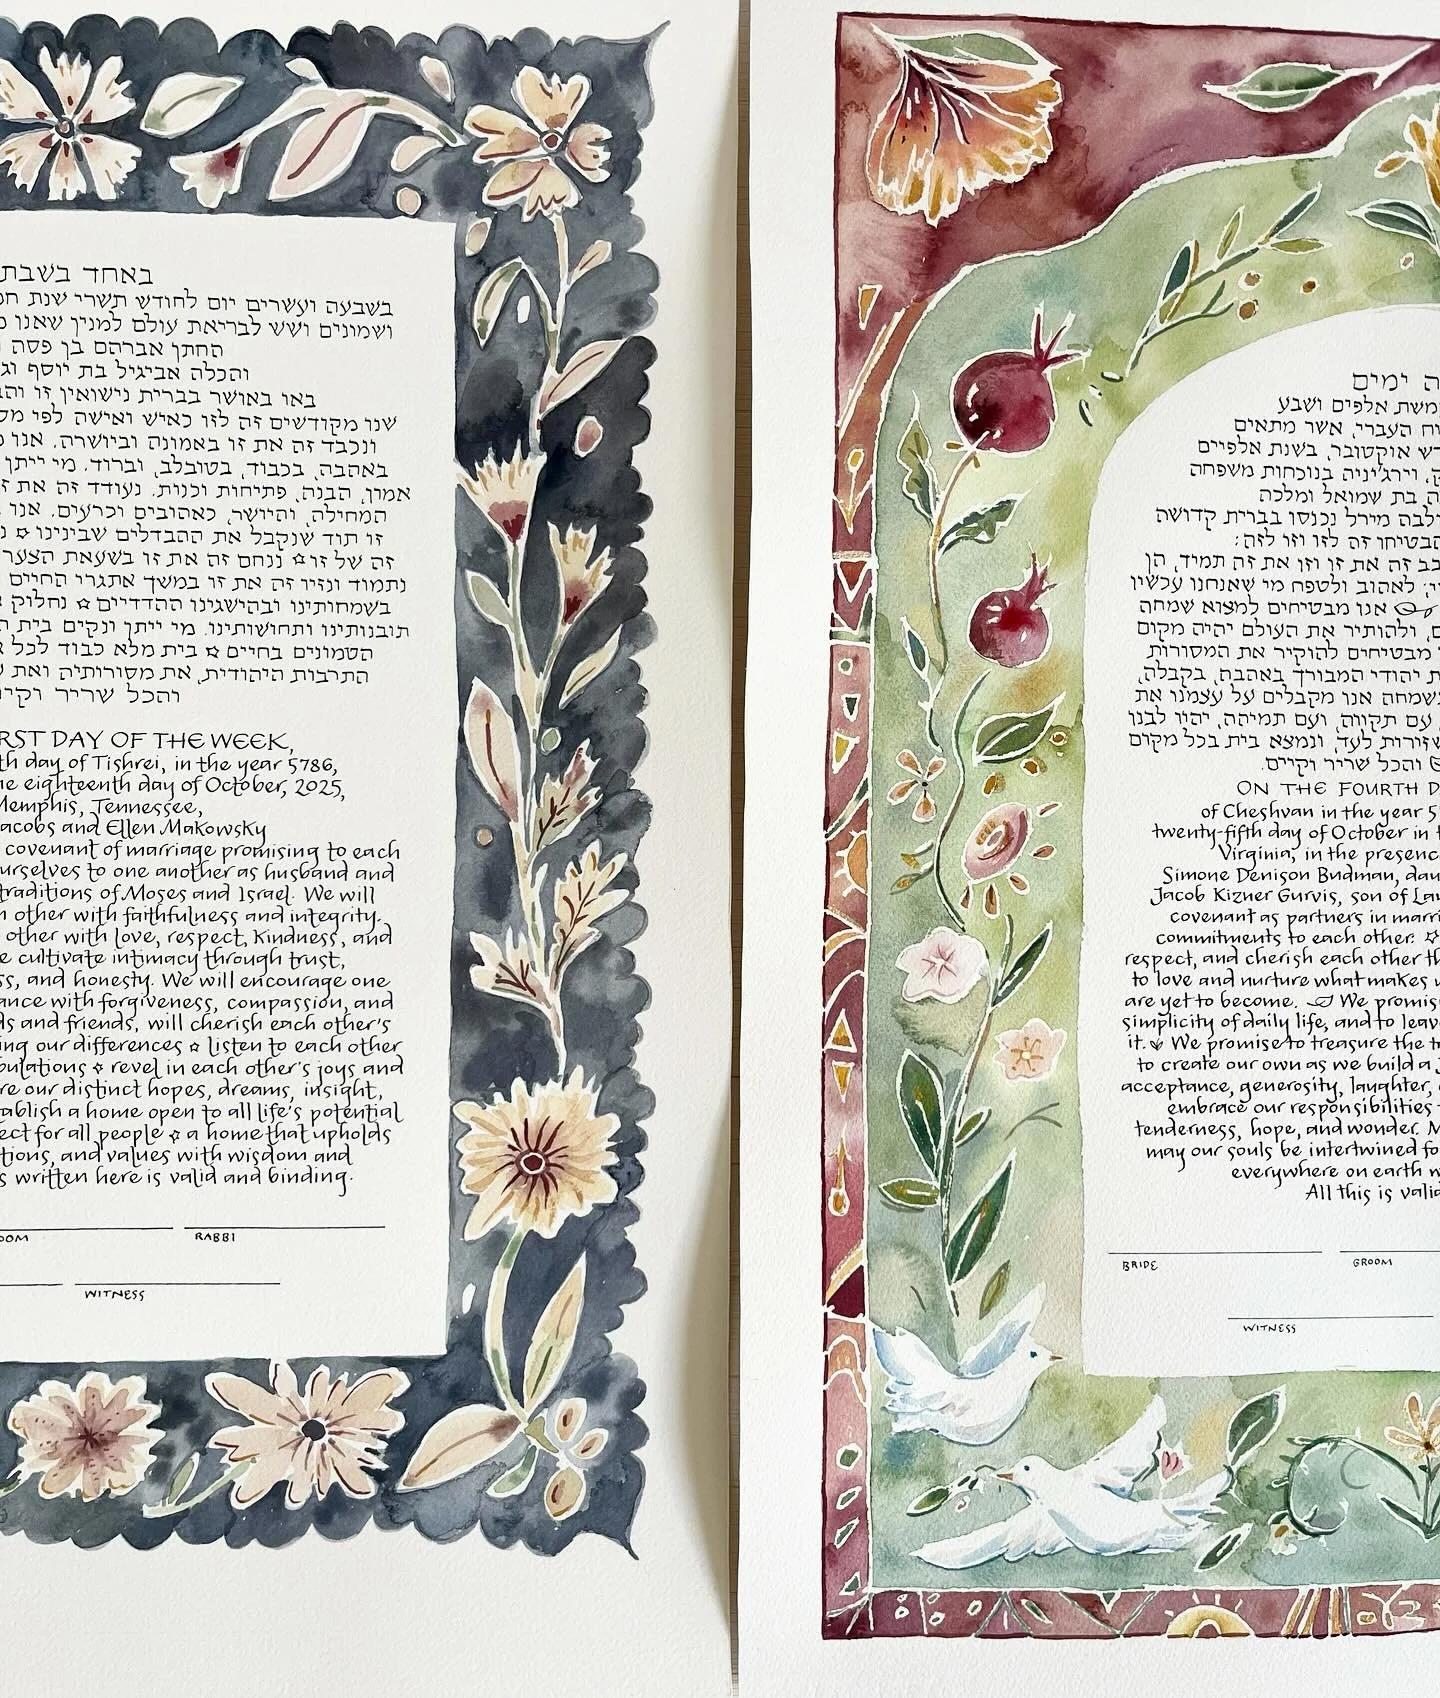 באחד בשבת
בשבעה ועשרים יום לחודש תשרי שנת
ושמונים ושש לבריאת עולם למנין שאנו
החתן אברהם בן פסח
והכלה אביגיל בת יוסף
באו באושר בברית נישואין זו
שנו מקודשים זה לזו כאיש ואישה לפי
ונכבד זה את זו באמונה וביושרה. אנו
באהבה, בכבוד, בטובלב, וברוד. מי ייתן
אמון, הבנה, פתיחות וכנות. נעודד זה את
המחילה, והיושר, כאהובים וכרעים. אנו
זו תוד שנקבל את ההבדלים שבינינו
זה של זו ננחם זה את זו בשעאת הצער
נתמוד ונזיו זה את זו במשך אתגרי החיים
בשמחותינו ובהישגינו ההדדיים נחלוק
תובנותינו ותחושותינו. מי ייתן ונקים בית
הטמונים בחיים בית מלא כבוד לכל
התרבות היהודית, את מסורותיה ואת
והכל שריר
RST DAY OF THE WEEK,
th day of Tishrei, in the year 5786,
he eighteenth day of October, 2025,
Memphis, Tennessee,
acobs and Ellen Makowsky
covenant of marriage promising to each
urselves to one another as husband and
traditions of Moses and Israel. We will
h other with faithfulness and integrity.
other with love, respect, kindness, and
e cultivate intimacy through trust,
ss, and honesty. We will encourage one
ance with forgiveness, compassion, and
ds and friends, will cherish each other's
ing our differences listen to each other
bulations revel in each other's joys and
re our distinct hopes, dreams, insight,
tablish a home open to all life's potential
ect for all people a home that upholds
tions, and values with wisdom and
s written here is valid and binding.
OOM RABBI
WITNESS
ה ימים
משת אלפים ושבע
וח העברי, אשר מתאים
דש אוקטובר, בשנת אלפיים
ק, וירג'יניה בנוכחות משפחה
ה, בת שמואל ומלכה
לבה מירל נכנסו בברית קדושה
הבטיחו זה לזו וזו לזה:
בב זה את זו וזו את זה תמיד, הן
יי; לאהוב ולטפח מי שאנחנו עכשיו
אנו מבטיחים למצוא שמחה
ם, ולהותיר את העולם יהיה מקום
מבטיחים להוקיר את המסורות
ת יהודי המבורך באהבה, בקבלה,
בשמחה אנו מקבלים על עצמנו את
עם תקווה, ועם תמיהה, יהיו לבנו
שזירות לעד, ונמצא בית בכל מקום
והכל שריר וקיים.
ON THE FOURTH D
of Cheshvan in the year 5
twenty-fifth day of October in t
Virginia, in the presence
Simone Denison Budman, dau
Jacob Kizner Gurvis, son of Lau
covenant as partners in marri
commitments to each other:
respect, and cherish each other th
to love and nurture what makes u
are yet to become. We promis
simplicity of daily life, and to leave
it. We promise to treasure the tr
to create our own as we build a J
acceptance, generosity, laughter,
embrace our responsibilities
tenderness, hope, and wonder. M
may our souls be intertwined fo
everywhere on earth w
All this is valid
BRIDE GROOM
WITNESS